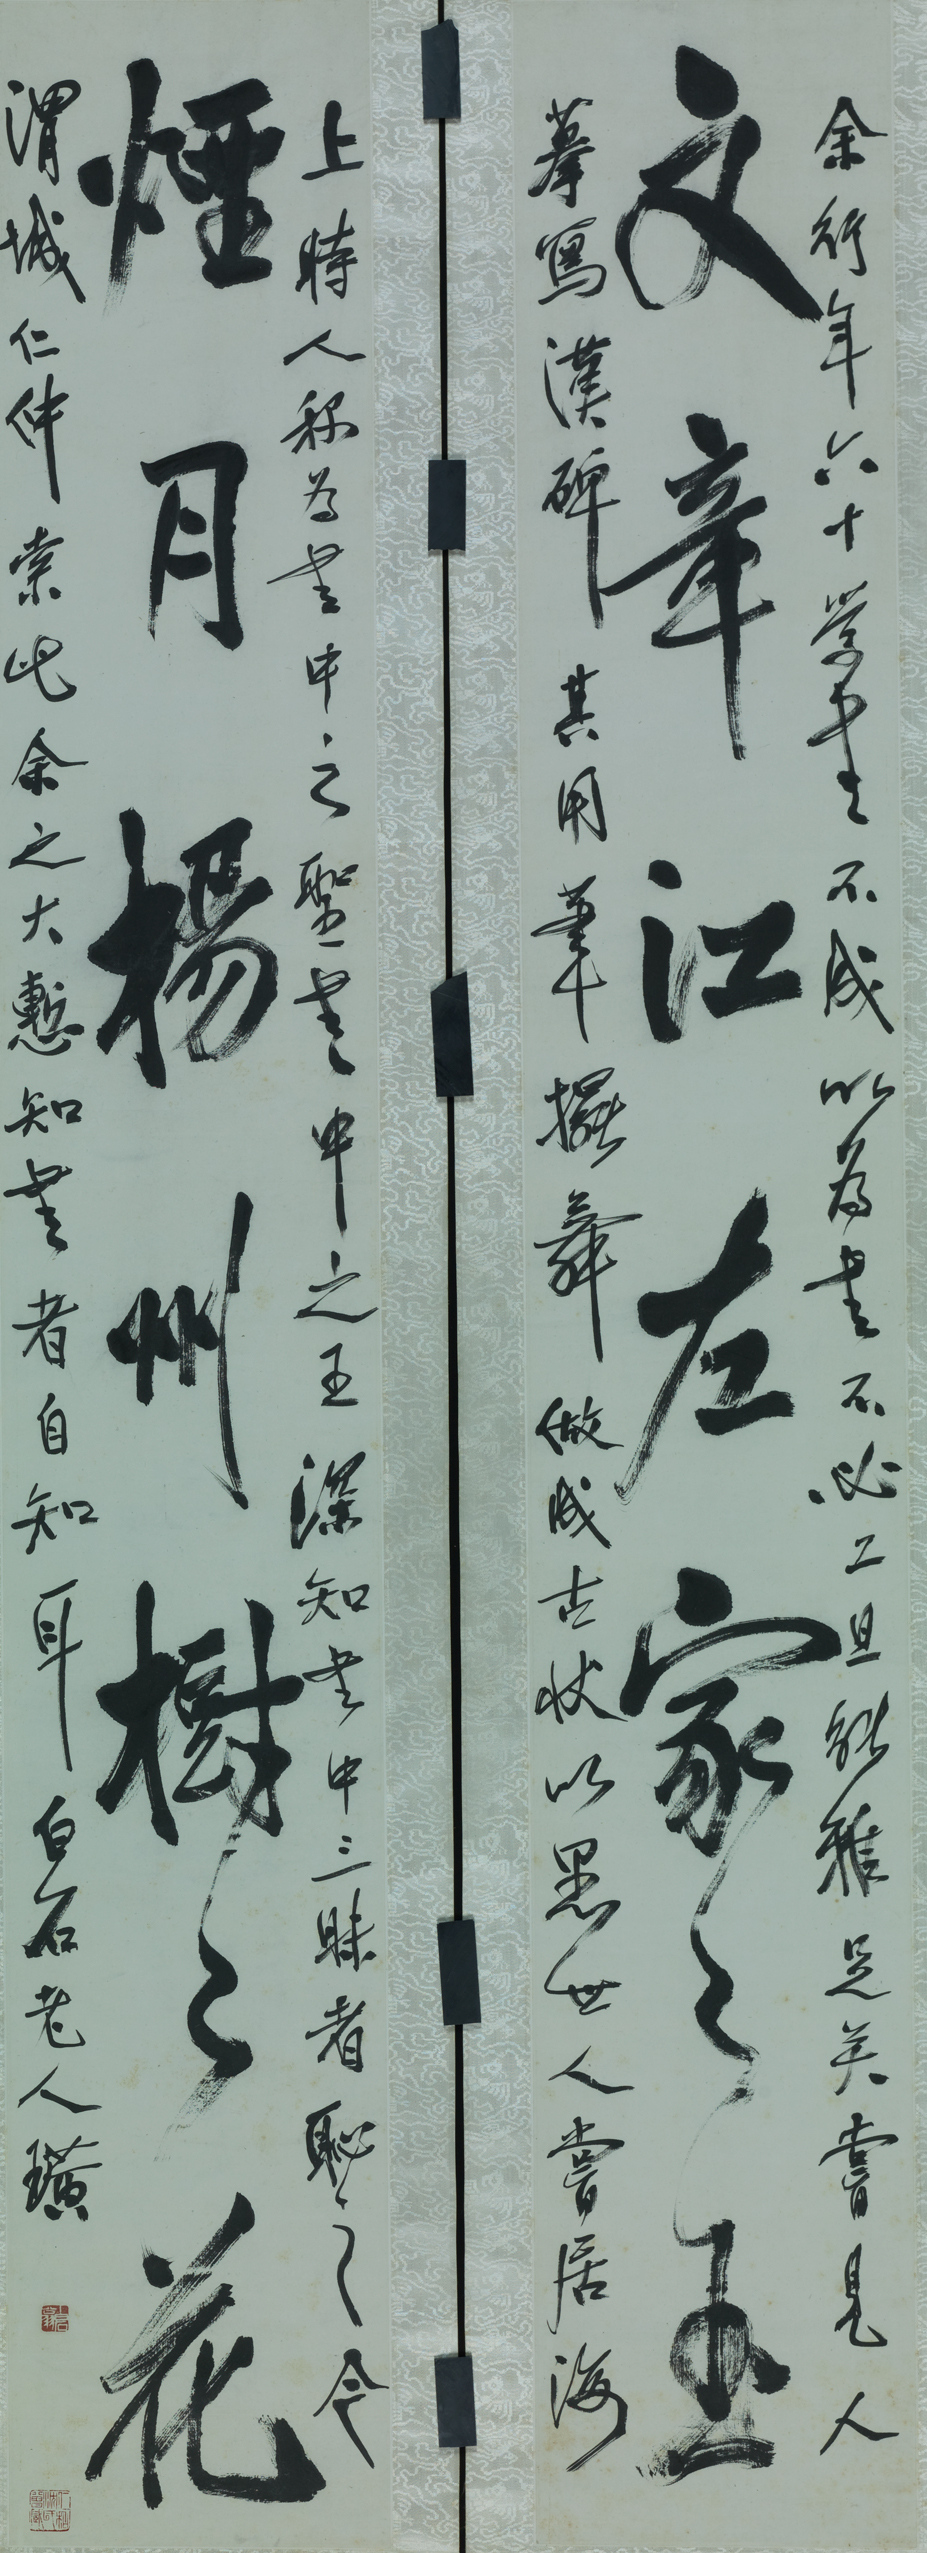 余行年六十學書不成以為書不必工且能雅足矣嘗見人
文章江左家々玉
摹寫漢碑其用筆擺舞做成古狀以愚世人嘗居海
上時人稱為書中之聖書中之王深知書中三昧者恥之今
煙月楊州樹々花
渭城仁仲索此余之大慙知書者自知耳白石老人璜